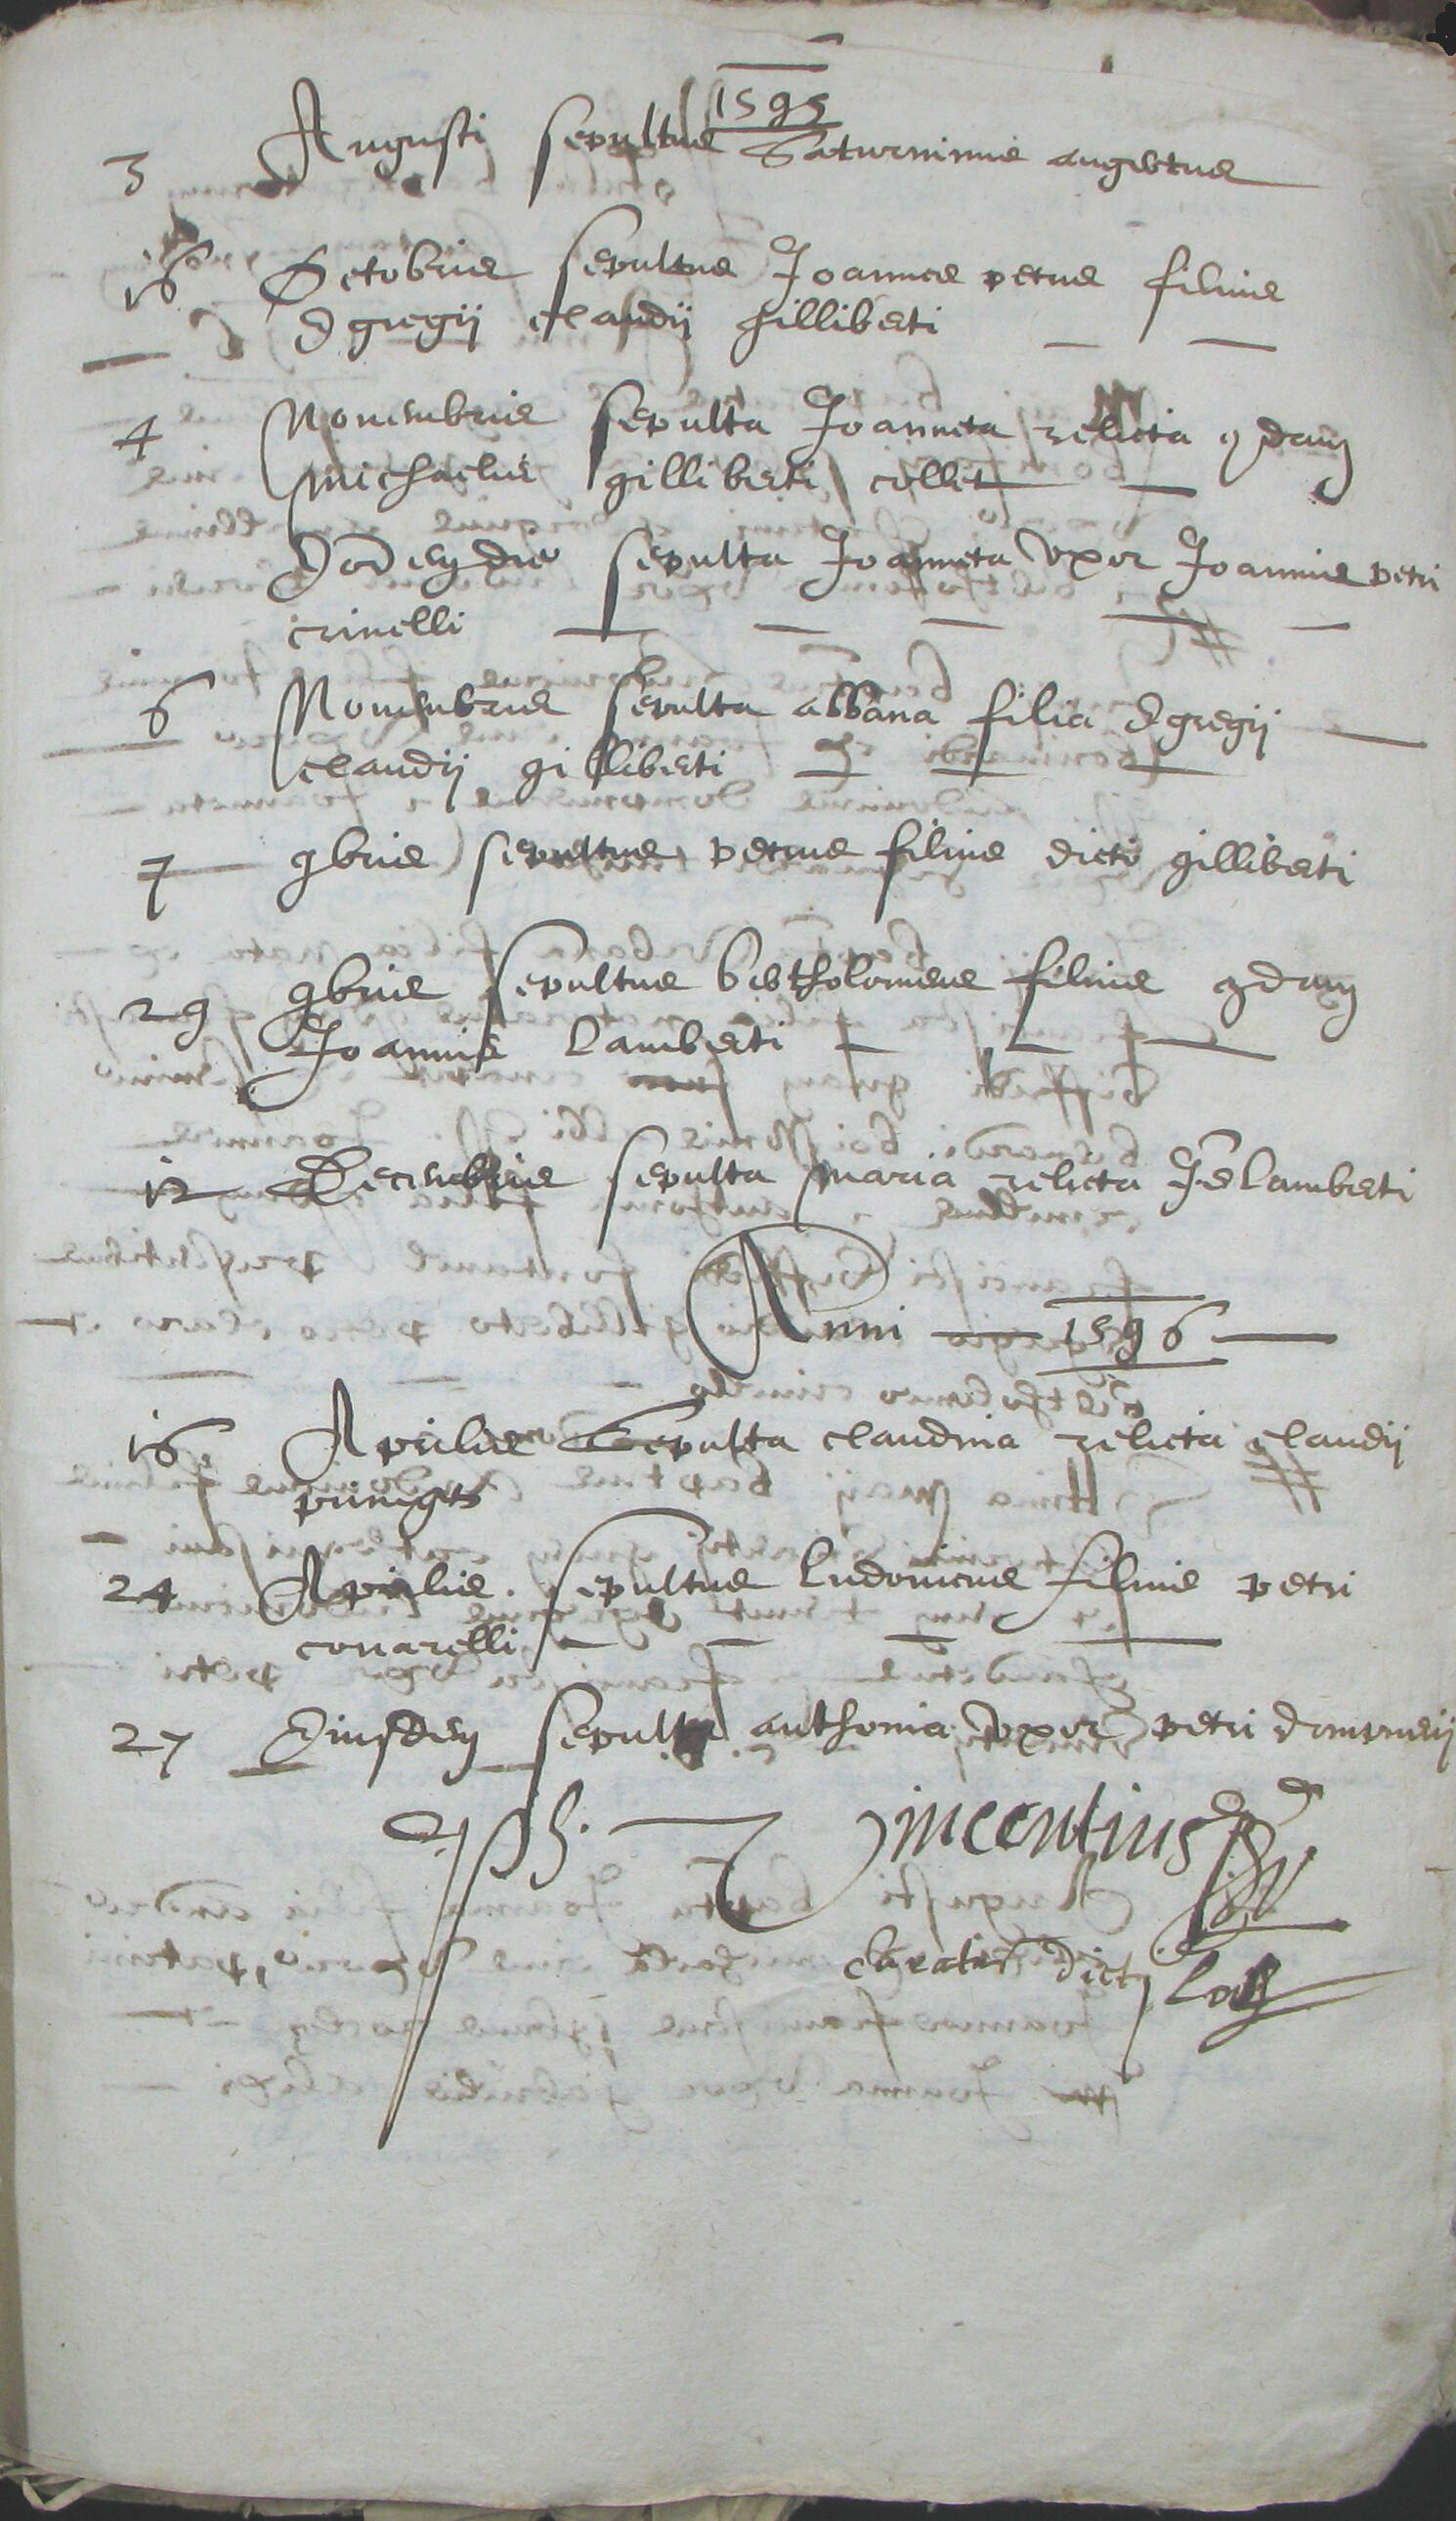 1595
3 Augusti sepultus Saturninus augertus
16 Octobris sepultus Joannes petrus filius
Egregij claudij gilliberti
4 Novembris sepulta Joanneta relicta qdam
michaelis gilliberti collet
Eod<sup>e</sup>m die sepulta Joanneta Uxor Joannis petri
crinelli
6 Novembris sepulta albana filia Egregij
claudij gilliberti
7 9bris sepultus petrus filius dicti gilliberti
29 9bris sepultus bertholomeus filius qdam
Joannis lamberti
12 Decembris sepulta maria relicta Jo<sup>is</sup> lamberti
Anni 1596
16 Aprilis Sepulta claudina relicta claudij
24 Aprilis sepultus ludovicus filius petri
covarelli
27 Eiusdem sepulta anthonia Uxor petri
Vincentius
dicti loci